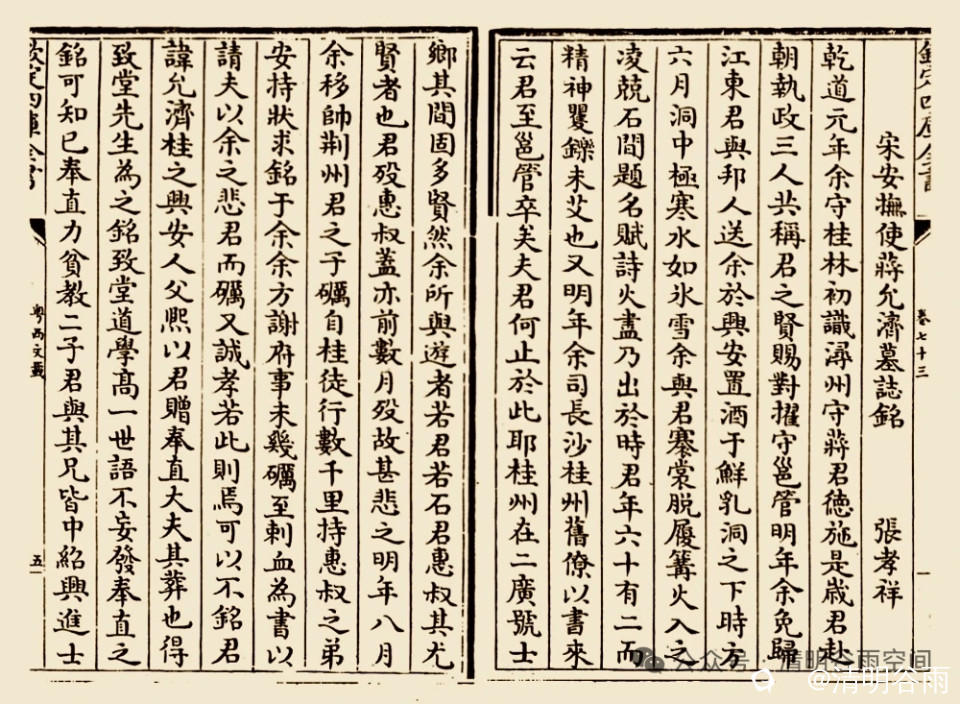 欽定四庫全書
卷七十三
一
宋安撫使蔣允濟墓誌銘 張孝祥
乾道元年余守桂林初識潯州守蔣君德施是歲君赴
朝執政三人共稱君之賢賜對擢守邕管明年余免歸
江東君與邦人送余於興安置酒于鮮乳洞之下時方
六月洞中極寒水如氷雪余與君褰裳脫履篝火入之
凌兢石間題名賦詩火盡乃出於時君年六十有二而
精神矍鑠未艾也又明年余司長沙桂州舊僚以書來
云君至邕管卒矣夫君何止於此耶桂州在二廣號士
鄉其間固多賢然余所與遊者若君若石君惠叔其尤
賢者也君殁惠叔蓋亦前數月殁故甚悲之明年八月
余移帥荆州君之子礪自桂徒行數千里持惠叔之弟
安持狀求銘于余余方謝府事未幾礪至刺血為書以
請夫以余之悲君而礪又誠孝若此則焉可以不銘君
諱允濟桂之興安人父熈以君贈奉直大夫其葬也得
致堂先生為之銘致堂道學髙一世語不妄發奉直之
銘可知已奉直力貧教二子君與其兄皆中紹興進士
欽定四庫全書
粤西文載
五
公众号·清明谷雨空间
@清明谷雨